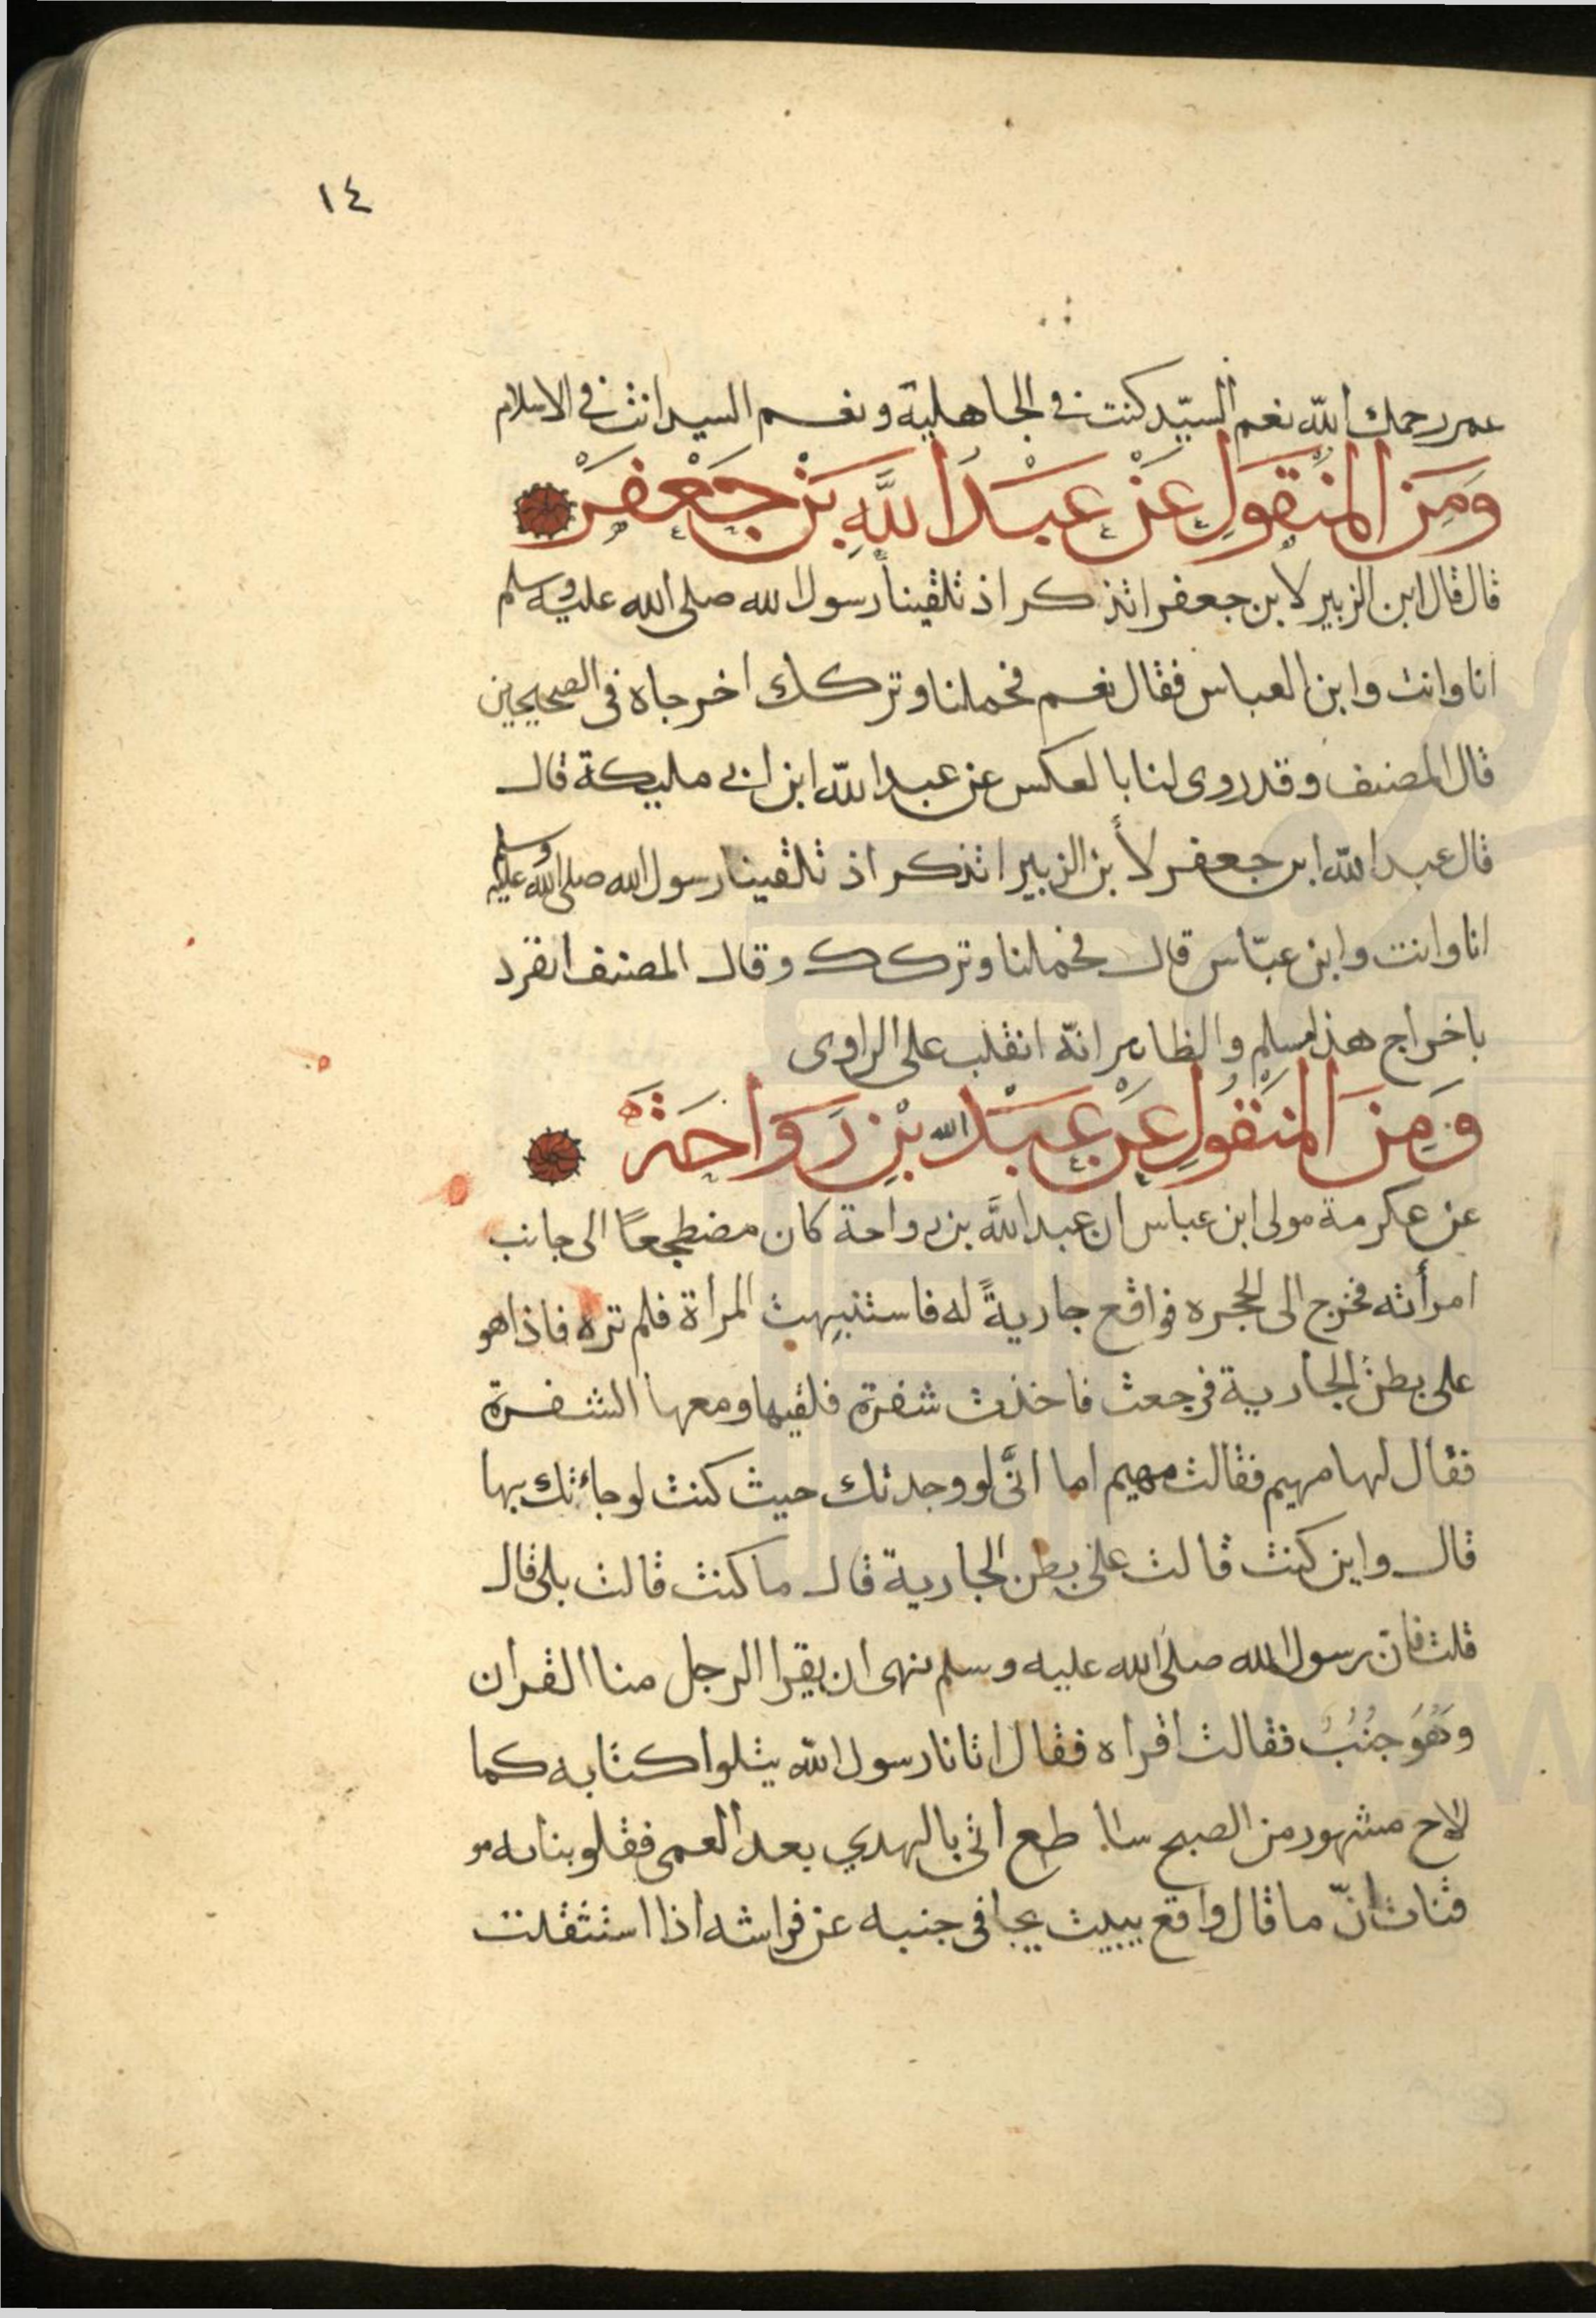 ١٤
عمر رحمك الله نعم السيّد كنت في الجاهلية ونعم السيد انت في الاسلام
وَمِنَ المَنْقُولِ عَنْ عَبْدِ اللَّهِ بْنِ جَعْفَرْ
قال قال ابن الزبير لابن جعفر اتذكر اذ تلقينا رسول الله صلى الله عليه وسلم
انا وانت وابن العباس فقال نعم فحملنا وتركك اخرجاه في الصحيحين
قال المصنف وقد روى لنا بالعكس عن عبد الله ابن ابي مليكة قال
قال عبد الله ابن جعفر لأبن الزبير اتذكر اذ تلقينا رسول الله صلى الله عليه وسلم
انا وانت وابن عبّاس قال فحملنا وتركك وقال المصنف انفرد
باخراج هذا مسلم والظاهر انّه انقلب على الراوى
وَمِنَ المَنْقُولِ عَنْ عَبْدِ الله بْنِ رَوَاحَةْ
عن عكرمة مولى ابن عباس ان عبد الله بن رواحة كان مضطجعًا الى جانب
امرأته فخرج الى الحجره فواقع جاريةً له فاستنبهت المراة فلم تره فاذا هو
على بطن الجارية فرجعت فاخذت شفرة فلقيها ومعها الشفرة
فقال لها مهيم فقالت مهيم اما انّى لو وجدتك حيث كنت لوجاءتك بها
قال واين كنت قالت على بطن الجارية قال ما كنت قالت بلى قال
قلت فان رسول الله صلى الله عليه وسلم نهى ان يقرا الرجل منا القران
وهُوَ جُنُبٌ فقالت اقراه فقال اتانا رسول الله يتلوا كتابه كما
لاح مشهور من الصبح سا طع اتى بالهدي بعد العمى فقلوبنا به مو
قنات انّ ما قال واقع يبيت يجافى جنبه عن فراشه اذا استثقلت